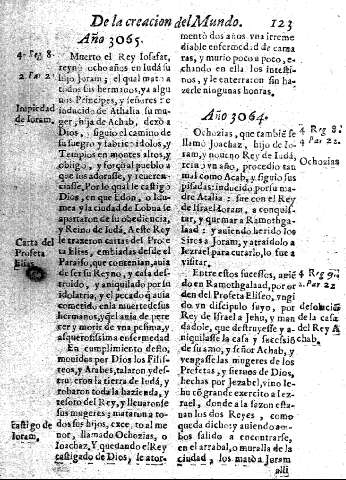 De la creacion del Mundo. 123
Año 3065.
4. Reg 8.
2. Par 21.
Impiedad
de Ioram.
Carta del
Profeta
Elias
Castigo de
Ioram.
Muerto el Rey Iosafat,
reynò ocho años en Iudá su
hijo Ioram; el qual matò a
todos sus hermanos, ya algu
nos Principes, y señores: e
inducido de Athalia su mu-
ger, hija de Achab, dexò a
Dios, y siguio el camino de
su suegro y fabricò idolos, y
Templos en montes altos, y
obligò, y forçò al pueblo a
que los adorasse, y reueren-
ciasse, Por lo qual le castigò
Dios, en que Edon, o Idu-
mea y la ciudad de Lobna se
apartaron de su obediencia,
y Reino de Iudá, A este Rey
le traxeron cartas del Profe
ta Elias, embiadas desde el
Paraiso, que contenian, auia
de ser su Reyno, y casa des-
truido, y aniquilado por su
idolatria, y el pecado q auia
cometido en la muerte de sus
hermanos, y q el auia de pere-
cer y morir de vna pesima, y
asquerosissima enfermedad
En cumplimiento desto,
mouidos por Dios los Filis-
teos, y Arabes, talaron y des-
truyeron la tierra de Iudá, y
robaron toda la hazienda, y
tesoro del Rey, y lleuaronse
sus mugeres; mataron a to-
dos sus hijos, excepto al me
nor, llamado Ochozias, o
Ioachaz, Y quedando el Rey
castigado de Dios, le ator-
mentò dos años vna irreme
diable enfermedad de cama
ras, y murio poco a poco, e-
chando en ella los intesti-
nos, y le enterraron sin ha-
zerle ningunas honras.
Año 3064.
Ochozias, que tambiẽ se
llamò Joachaz, hijo de Io-
ram, y noueno Rey de Iudá,
reinò vn año, procedio tan
mal como Acab, y siguio sus
pisadas: inducido por su ma-
dre Atalia: fue con el Rey
de Israel Ioram, a conquis-
tar, y quemar a Ramothga-
laad: y auiendo herido los
Siros a Joram, y atraidolo a
Iezrael para curarlo, le fue a
visitar.
Entre estos sucessos, auiẽ
do en Ramothgalaad, por or
den del Profeta Eliseo, vngi
do vn discipulo suyo, por
Rey de Israel a Jehu, y man
dadole, que destruyesse y a-
niquilasse la casa y sucessiõ
de su amo, y señor Achab, y
vengasse las mugeres de los
Profetas, y sieruos de Dios,
hechas por Jezabel, vino Ie-
hu cõ grande exercito a Iez-
rael, donde a la sazon esta-
uan los dos Reyes, como
queda dicho: y auiendo am-
bos salido a encontrarse,
en el arrabal, o muralla de la
ciudad, los matò a Joram
alli
4 Reg 8.
2 Par 22.
Ochozias
4 Reg 9.
2. Par 22
desolaciõ
de la casa
del Rey A
chab.